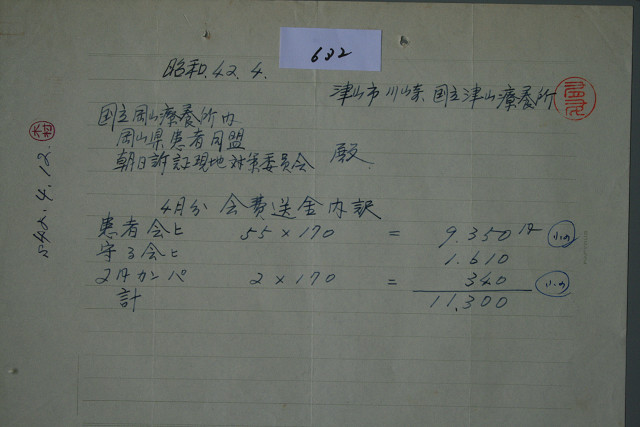 632
昭和.42.4.
津山市川崎 国立津山療養所
国立岡山療養所内
岡山県患者同盟
朝日訴訟現地対策委員会 殿
4月分 会費送金内訳
患者会ヒ 55×170 = 9.350円
守る会ヒ 1.610
2円カンパ 2×170 = 340
計 11,300
S42.4.12.